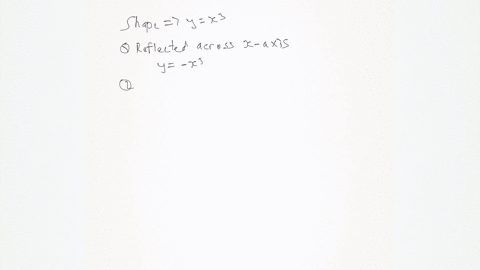 Shape => y = x³
① Reflected across x-axis
y = -x³
②